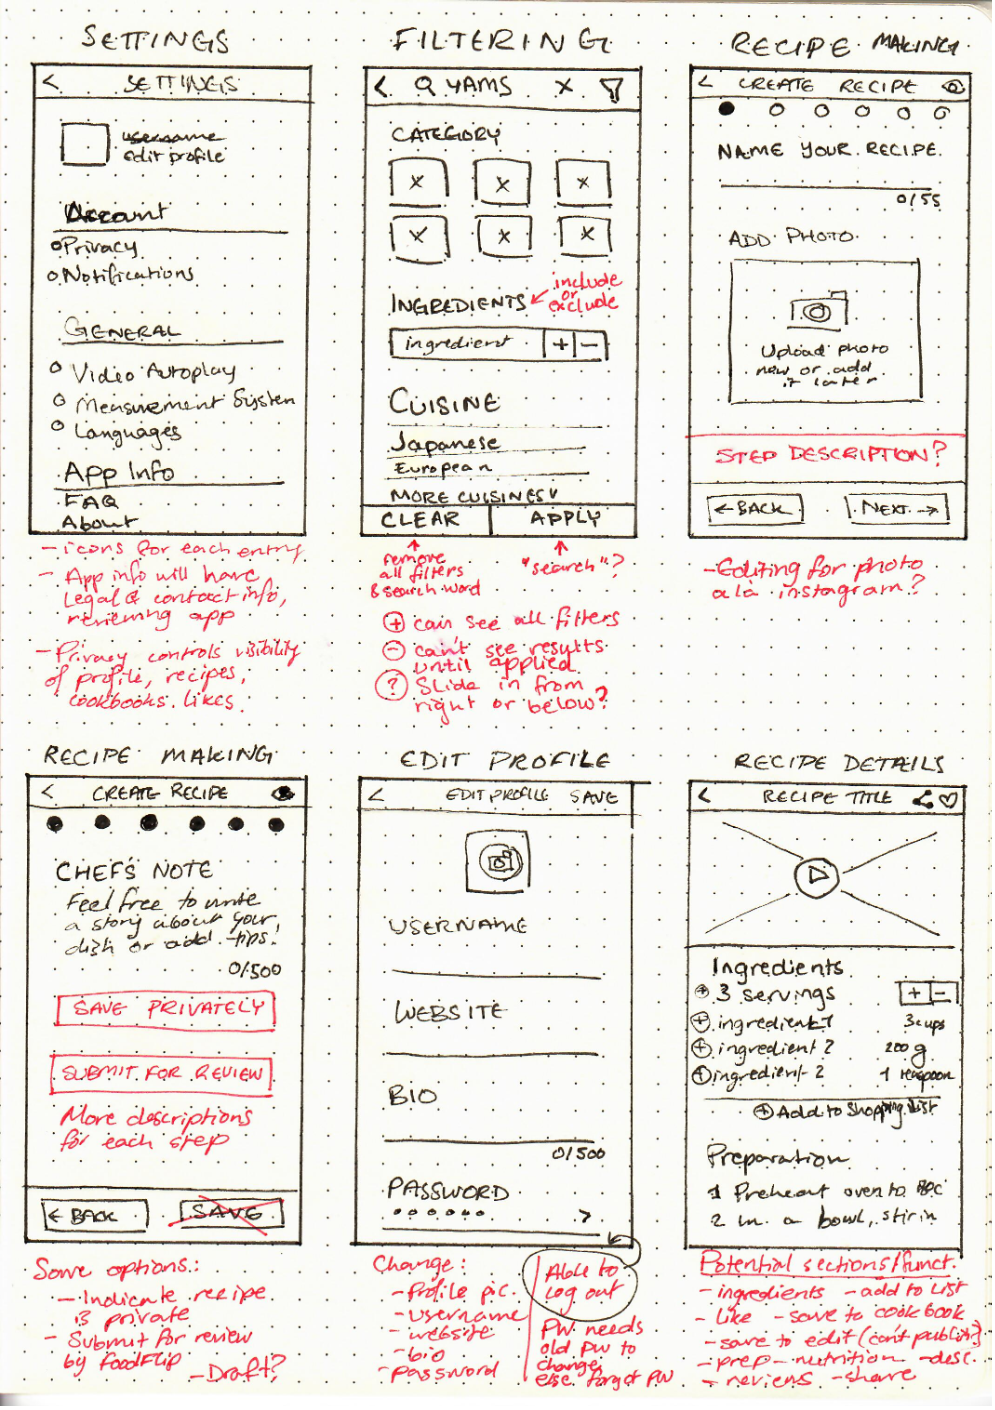 SETTINGS
< SETTINGS
username
edit profile
Account
Privacy
Notifications
GENERAL
Video Autoplay
Measurement System
Languages
App Info
FAQ
About
- icons for each entry
- App info will have
Legal & contact info,
reviewing app
- Privacy controls visibility
of profile, recipes,
cookbooks. likes.
FILTERING
< Q YAMS X
CATEGORY
INGREDIENTS
include
or
exclude
ingredient + -
CUISINE
Japanese
European
MORE CUISINES
CLEAR APPLY
remove
all filters
& search word
"search"?
+ can see all filters
- can't see results
until applied
? Slide in from
right or below?
RECIPE MAKING
< CREATE RECIPE
NAME YOUR RECIPE.
0/55
ADD PHOTO
Upload photo
now or add
it later
STEP DESCRIPTION?
← BACK NEXT →
- Editing for photo
a la instagram?
RECIPE MAKING
< CREATE RECIPE
CHEF'S NOTE
Feel free to write
a story about your
dish or add tips!
0/500
SAVE PRIVATELY
SUBMIT FOR REVIEW
More descriptions
for each step
← BACK SAVE
Save options:
- Indicate recipe
is private
- Submit for review
by FoodFlip
- Draft?
EDIT PROFILE
< EDIT PROFILE SAVE
USERNAME
WEBSITE
BIO
0/500
PASSWORD
>
Change:
- Profile pic.
- username
- website
- bio
- password
Able to
log out
PW needs
old pw to
change,
else forgot PW
RECIPE DETAILS
< RECIPE TITLE
Ingredients
3 servings + -
+ ingredient 1 3 cups
+ ingredient 2 200 g
+ ingredient 2 1 teaspoon
+ Add to Shopping list
Preparation
1 Preheat oven to
2 in a bowl, stir in
Potential sections/funct.
- ingredients - add to List
- Like - save to cookbook
- save to edit (can't publish?)
- prep - nutrition - desc.
- reviews - share